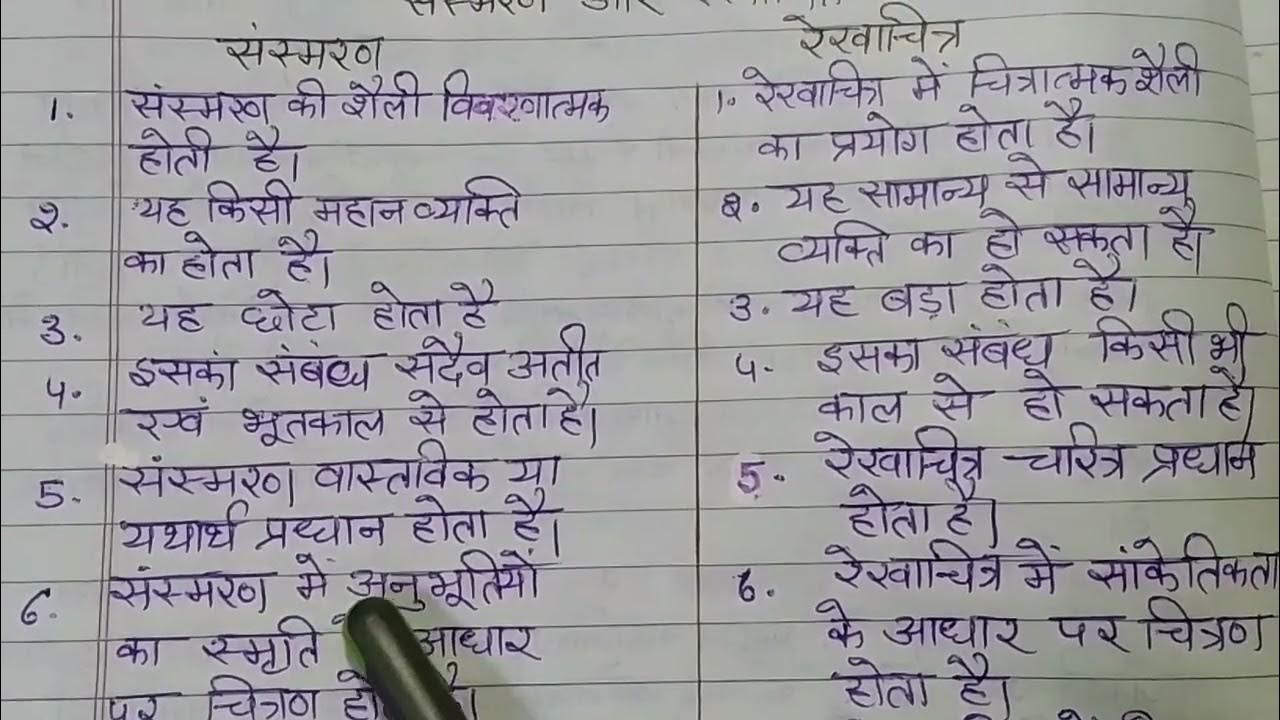 संस्मरण और
संस्मरण
1. संस्मरण की शैली विवरणात्मक
होती है।
2. यह किसी महान व्यक्ति
का होता है।
3. यह छोटा होता है
4. इसका संबंध सदैव अतीत
एवं भूतकाल से होता है।
5. संस्मरण वास्तविक या
यथार्थ प्रधान होता है।
6. संस्मरण में अनुभूतियों
का स्मृति आधार
पर चित्रण
रेखाचित्र
1. रेखाचित्र में चित्रात्मक शैली
का प्रयोग होता है।
2. यह सामान्य से सामान्य
व्यक्ति का हो सकता है।
3. यह बड़ा होता है।
4. इसका संबंध किसी भी
काल से हो सकता है।
5. रेखाचित्र चरित्र प्रधान
होता है।
6. रेखाचित्र में सांकेतिकता
के आधार पर चित्रण
होता है।